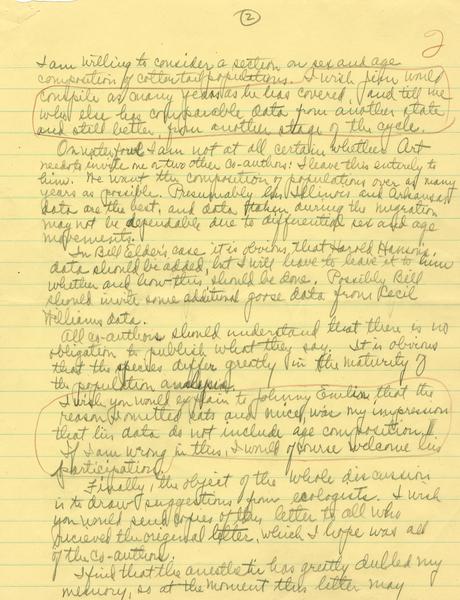 2
2
I am willing to consider a section on sex and age
composition of cottontail populations. I wish you would
compile as many years as he has covered, and tell me
who else has comparable data from another state
and still better, from another stage of the cycle.
On waterfowl I am not at all certain whether Art
needs to invite one or two other co-authors: I leave this entirely to
him. We want the composition of populations over as many
years as possible. Presumably his Illinois and Arkansas
data are the best, and data taken during the migration
may not be dependable due to differential sex and age
movements.
In Bill Elder's case it is obvious that Harold Hanson's
data should be added, but I will have to leave it to him
whether and how this should be done. Possibly Bill
should invite some additional goose data from Cecil
Williams data.
All co-authors should understand that there is no
obligation to publish what they say. It is obvious
that the species differ greatly in the maturity of
the population analysis.
I wish you would explain to Johnny Emlen that the
reason I omitted rats and mice, was my impression
that his data do not include age composition.
If I am wrong in this, I would of course welcome his
participation.
Finally, the object of the whole discussion
is to draw suggestions from ecologists. I wish
you would send copies of this letter to all who
recieved the original letter, which I hope was all
of the co-authors.
I find that the anesthetic has greatly dulled my
memory, so at the moment this letter may